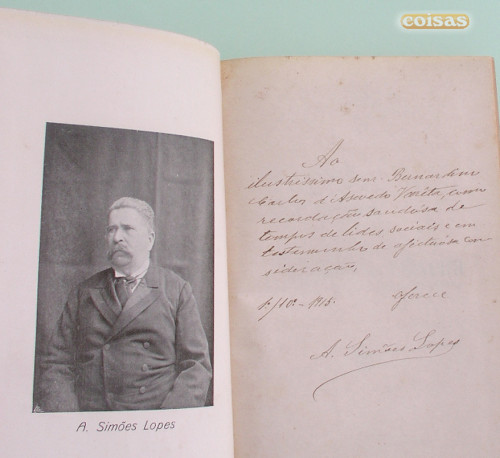 coisas
A. Simões Lopes
Ao
ilustrissimo snr. Bernardino
Carlos d'Azevedo Varéta, como
recordação saudosa de
tempos de lides sociais e em
testemunho de afectuosa con
sideração,
1915. oferece
A. Simões Lopes